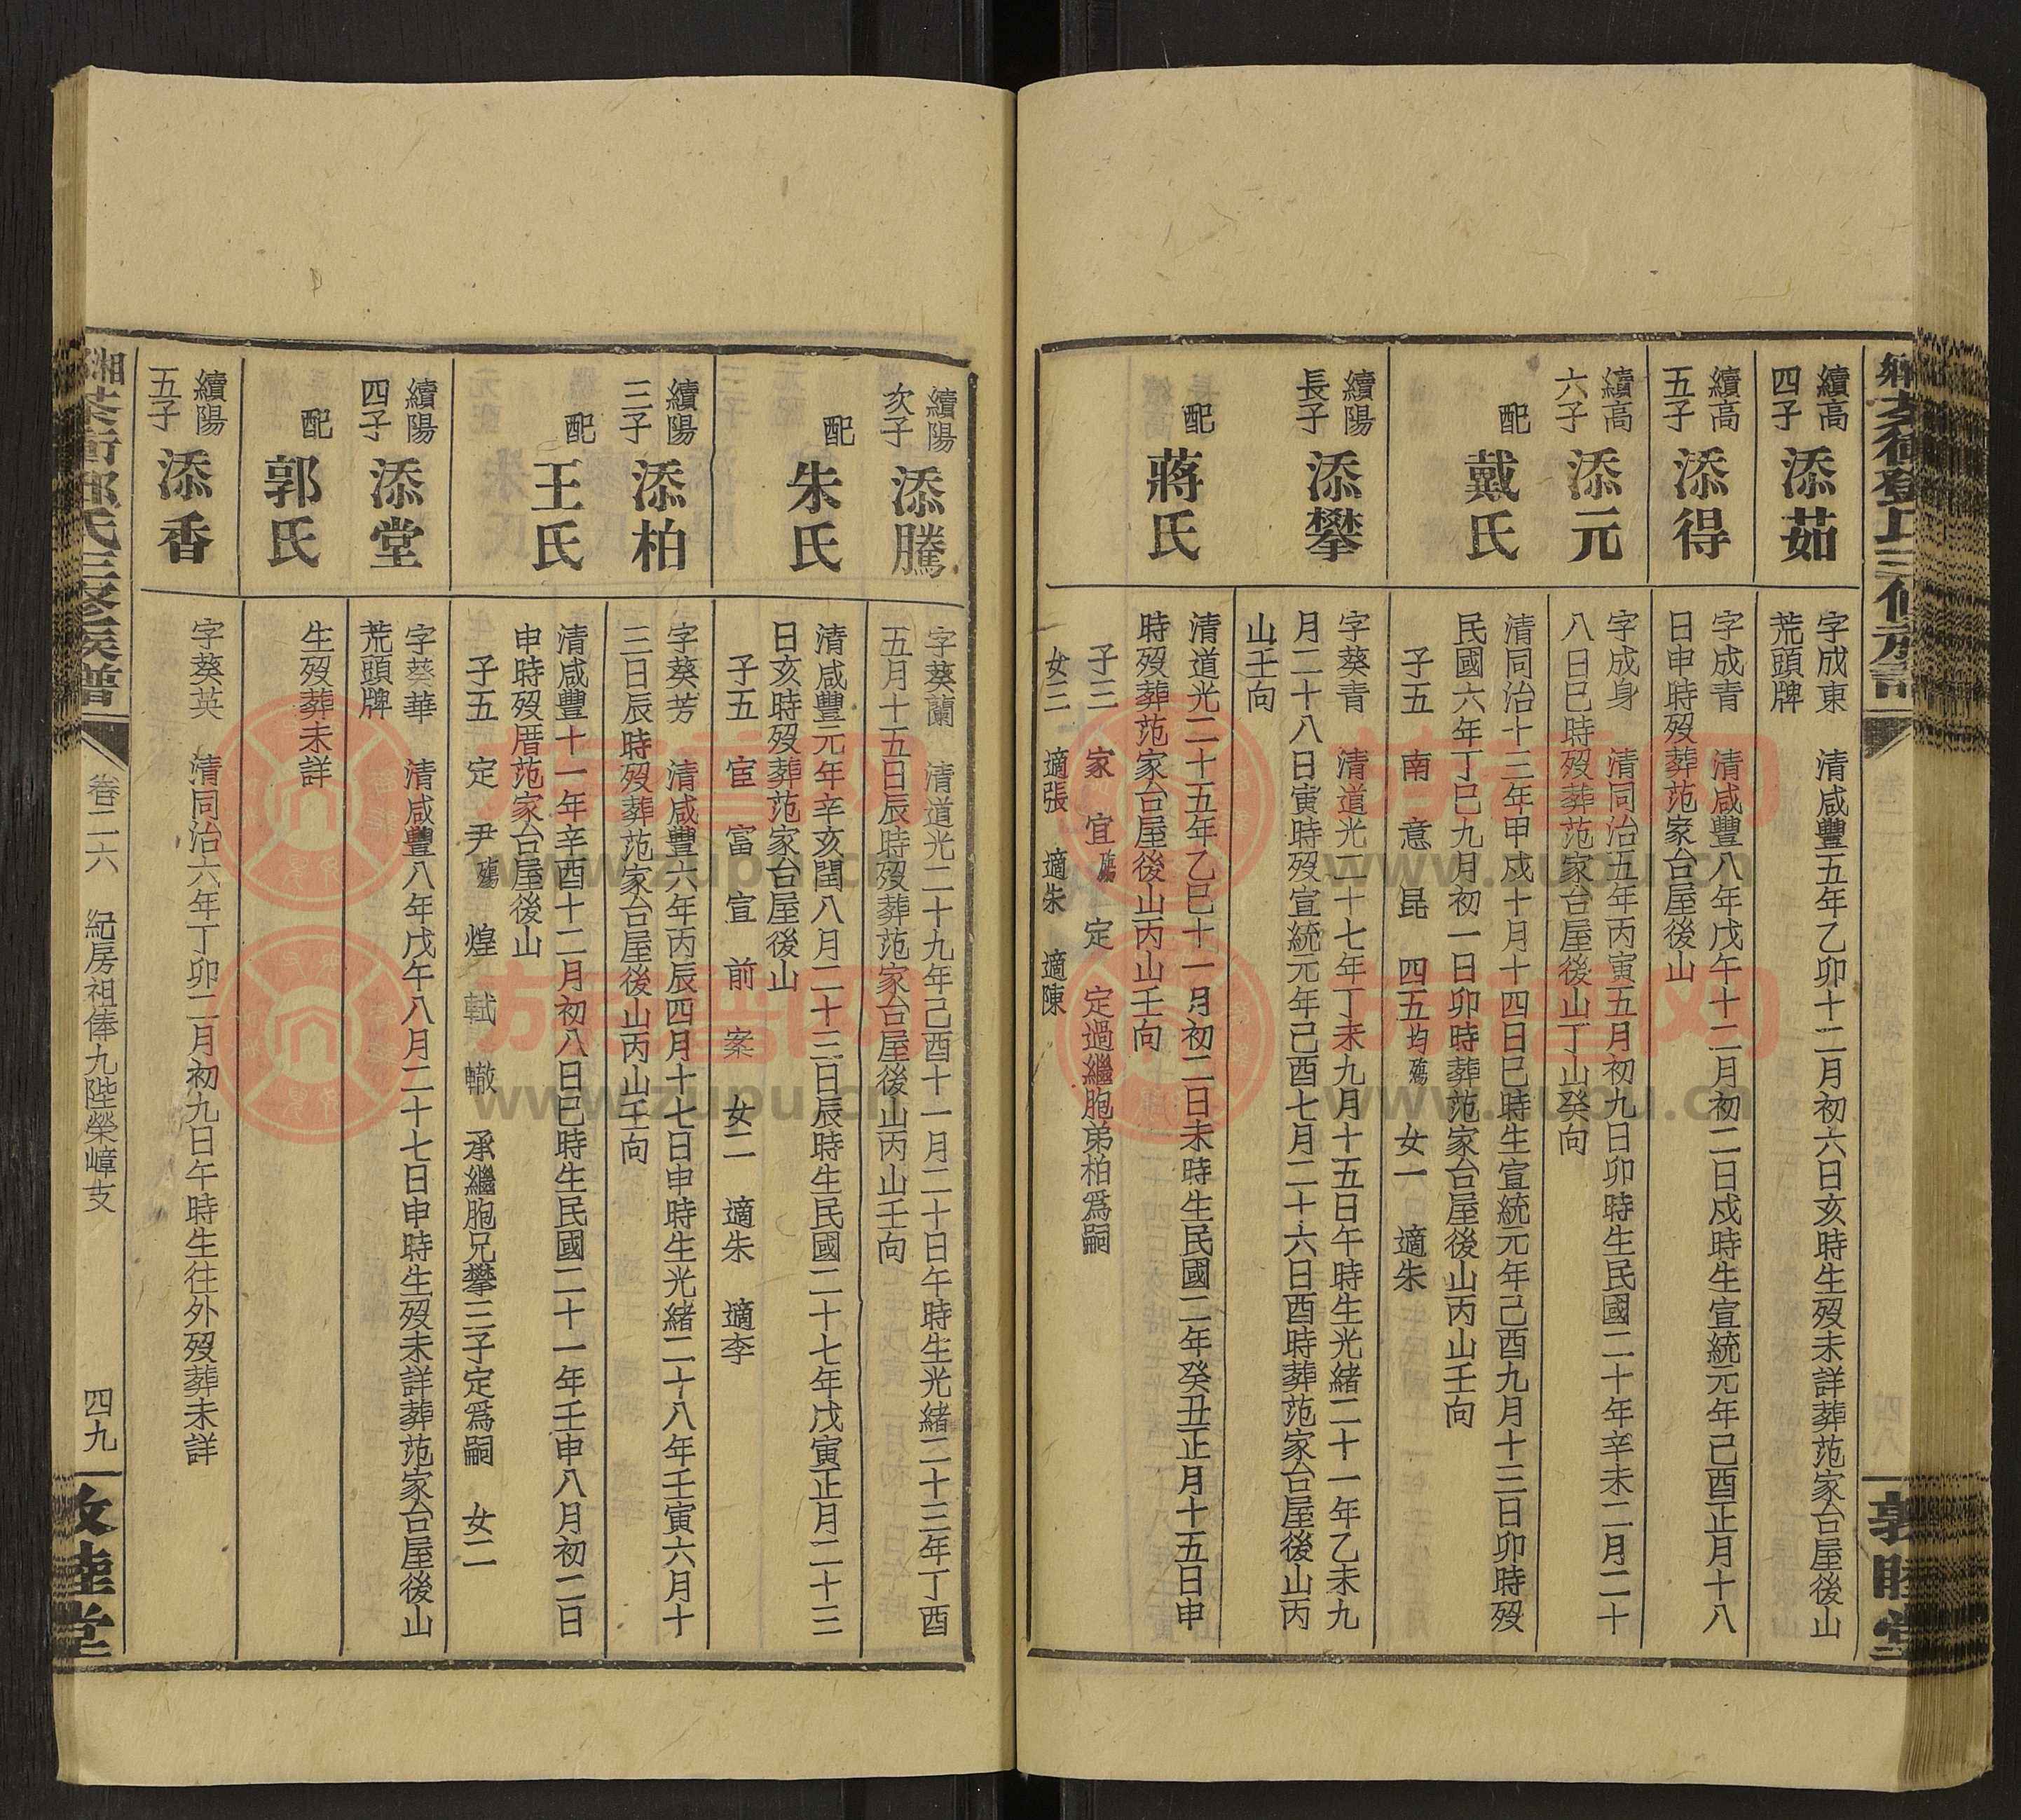 續高
四子
添茹
字成東　清咸豐五年乙卯十二月初六日亥時生歿未詳葬范家台屋後山
荒頭牌
續高
五子
添得
字成青　清咸豐八年戊午十二月初二日戍時生宣統元年己酉正月十八
日申時歿葬范家台屋後山
續高
六子
添元
字成身　清同治五年丙寅五月初九日卯時生民國二十年辛未二月二十
八日巳時歿葬范家台屋後山丁山癸向
配
戴氏
清同治十三年甲戍十月十四日巳時生宣統元年己酉九月十三日卯時歿
民國六年丁巳九月初一日卯時葬范家台屋後山丙山壬向
子五　南　意　昆　四五均殤　女一　適朱
續陽
長子
添攀
字葵青　清道光二十七年丁未九月十五日午時生光緒二十一年乙未九
月二十八日寅時歿宣統元年己酉七月二十六日酉時葬范家台屋後山丙
山壬向
配
蔣氏
清道光二十五年乙巳十一月初二日未時生民國二年癸丑正月十五日申
時歿葬范家台屋後山丙山壬向
子三　家　宜殤　定　定過繼胞弟柏爲嗣
女三　適張　適朱　適陳
續陽
次子
添騰
字葵蘭　清道光二十九年己酉十一月二十日午時生光緒二十三年丁酉
五月十五日辰時歿葬范家台屋後山丙山壬向
配
朱氏
清咸豐元年辛亥閏八月二十三日辰時生民國二十七年戊寅正月二十三
日亥時歿葬范家台屋後山
子五　宦　富　宣　前　案　女二　適朱　適李
續陽
三子
添柏
字葵芳　清咸豐六年丙辰四月十七日申時生光緒二十八年壬寅六月十
三日辰時歿葬范家台屋後山丙山壬向
配
王氏
清咸豐十一年辛酉十二月初八日巳時生民國二十一年壬申八月初二日
申時歿厝范家台屋後山
子五　定　尹殤　煌　軾　轍　承繼胞兄攀三子定爲嗣　女二
續陽
四子
添堂
字葵華　清咸豐八年戊午八月二十七日申時生歿未詳葬范家台屋後山
荒頭牌
配
郭氏
生歿葬未詳
續陽
五子
添香
字葵英　清同治六年丁卯二月初九日午時生往外歿葬未詳
卷二六　紀房祖俸九陛榮嶂支　四九
敦睦堂
族谱网
www.zupu.cn